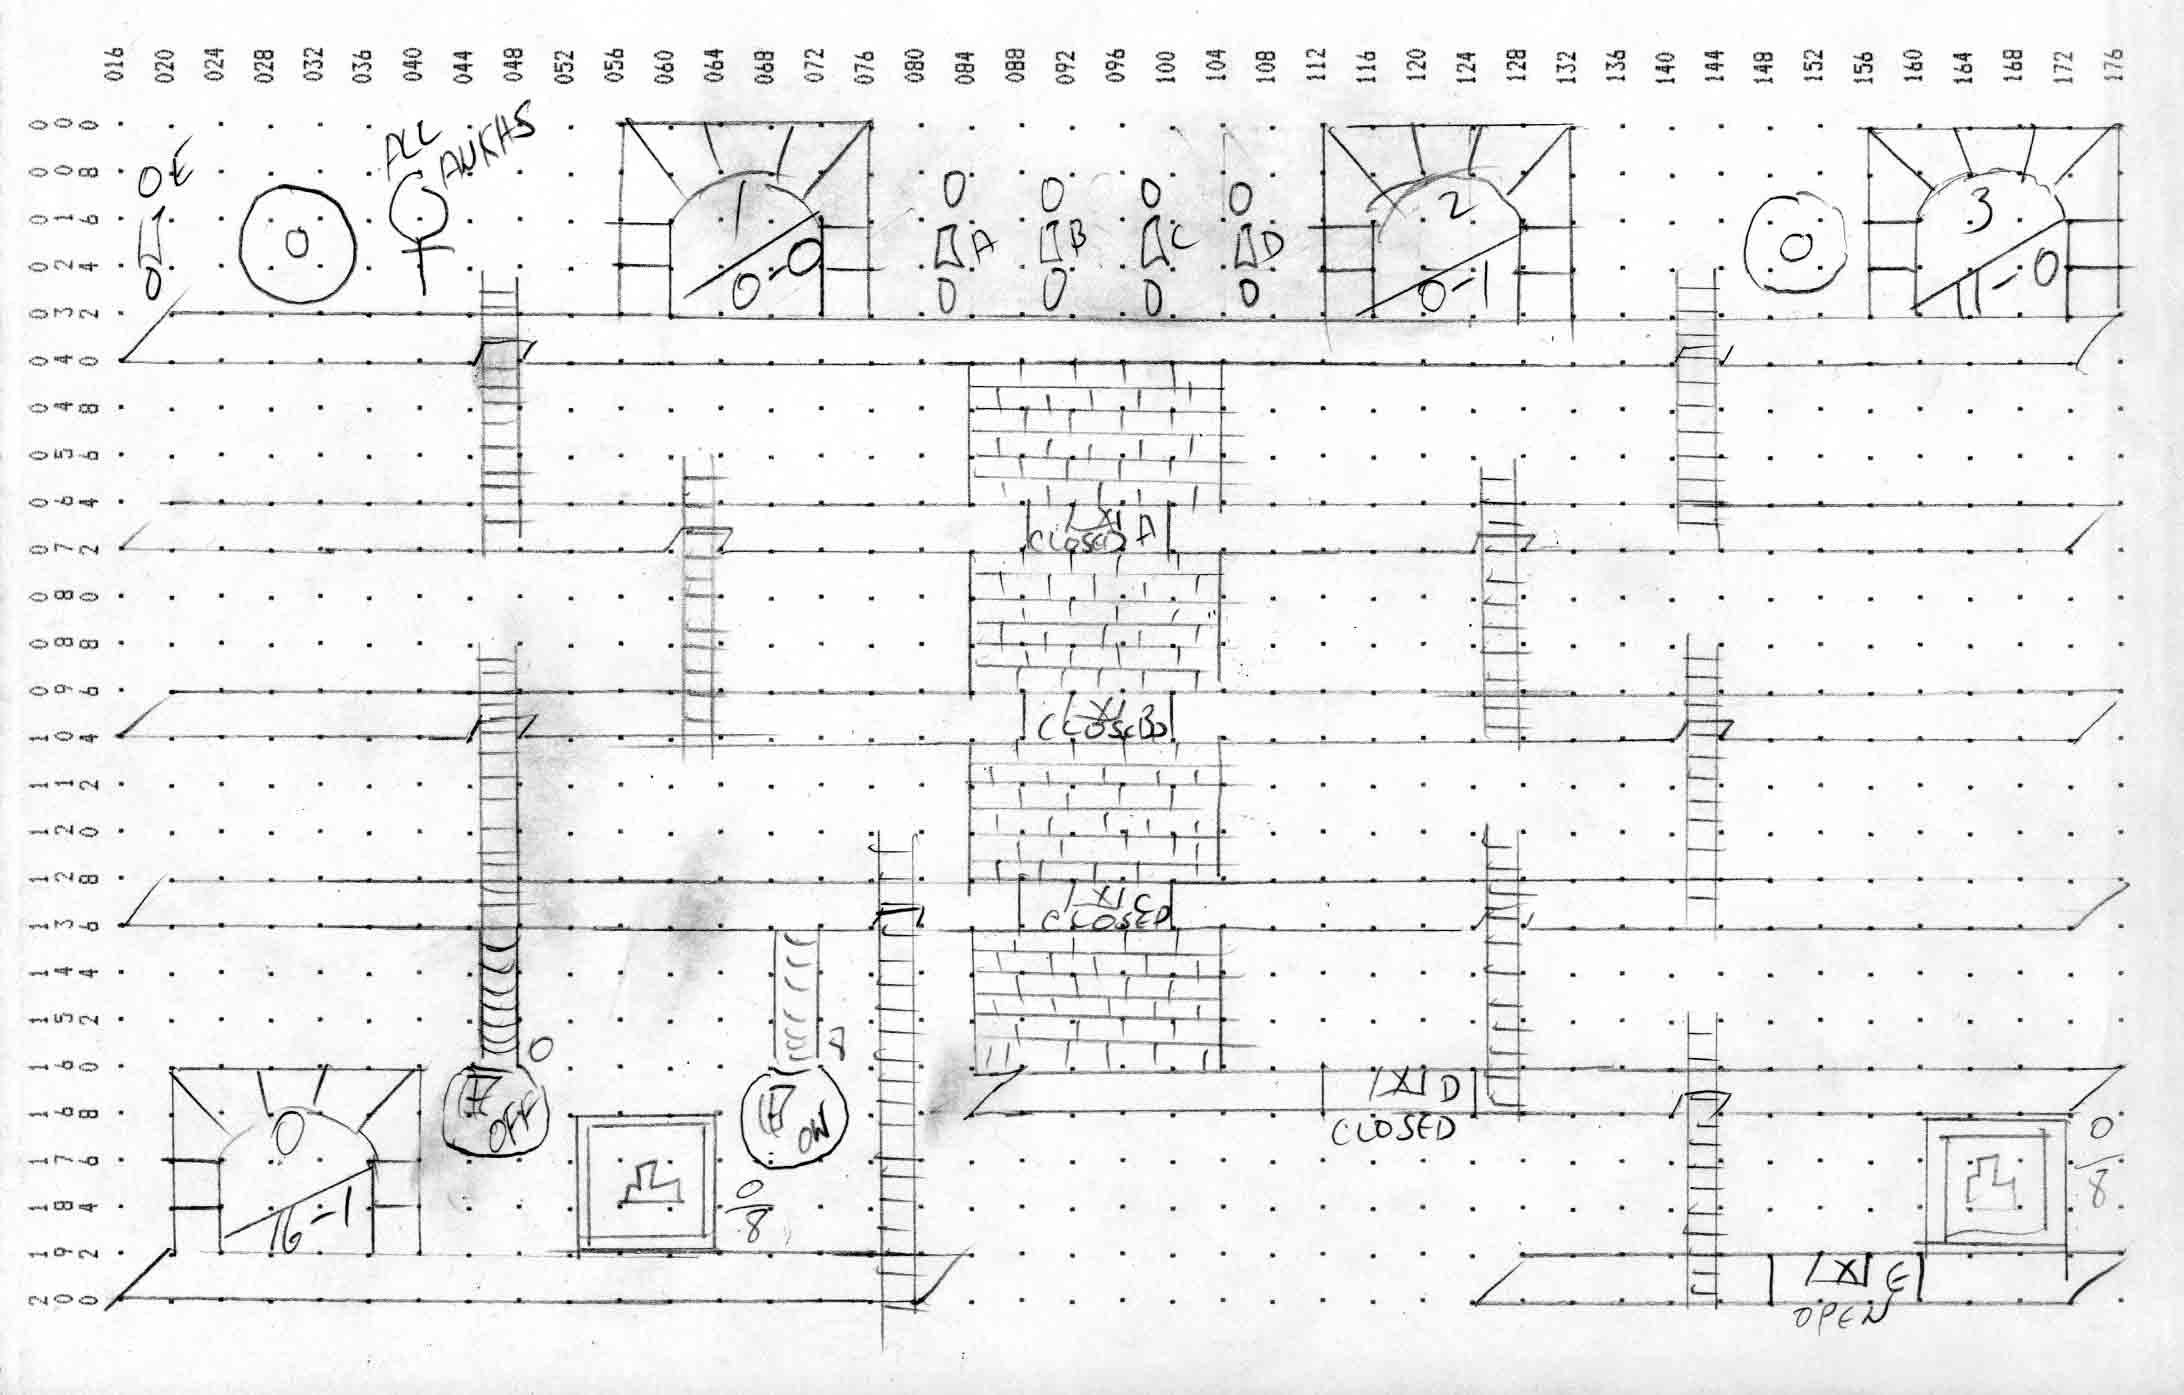 016 020 024 028 032 036 040 044 048 052 056 060 064 068 072 076 080 084 088 092 096 100 104 108 112 116 120 124 128 132 136 140 144 148 152 156 160 164 168 172 176
000
008
016
024
032
040
048
056
064
072
080
088
096
104
112
120
128
136
144
152
160
168
176
184
192
200
ALL
ANKHS
E
1
0-0
A
B
C
D
2
0-1
3
11-0
CLOSED A
CLOSED B
C
CLOSED
0
OFF
ON
D
CLOSED
0
16-1
0
8
0
8
E
OPEN